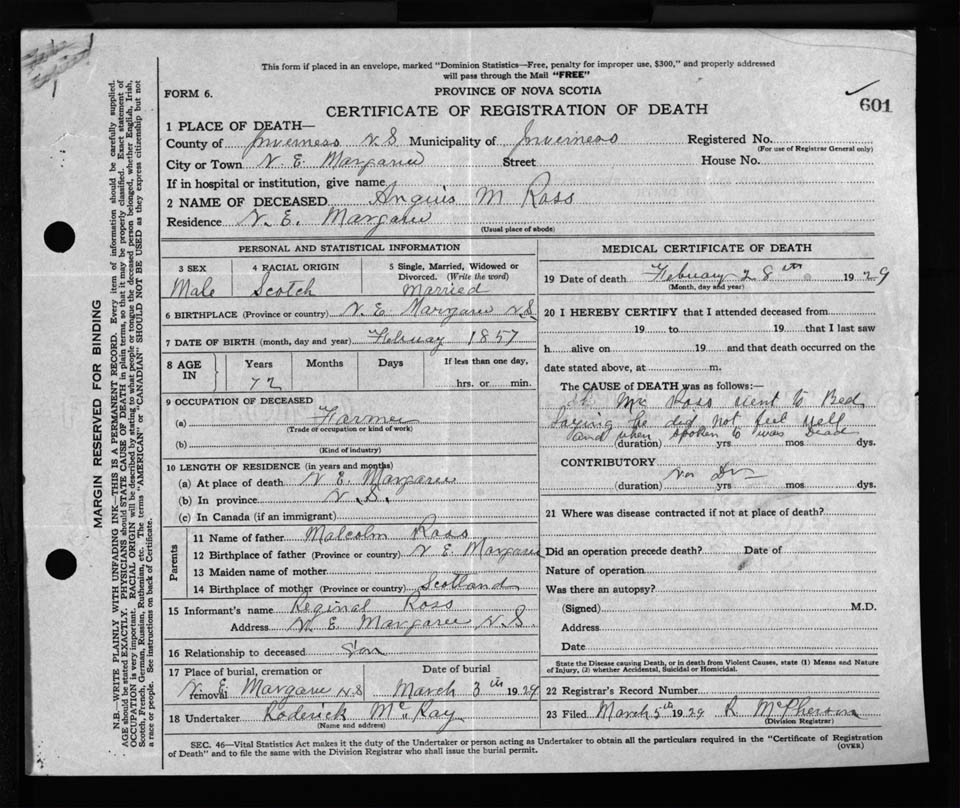 This form if placed in an envelope, marked "Dominion Statistics—Free, penalty for improper use, $300," and properly addressed
will pass through the Mail "FREE"
FORM 6.
PROVINCE OF NOVA SCOTIA
601
CERTIFICATE OF REGISTRATION OF DEATH
1 PLACE OF DEATH—
County of Inverness N S Municipality of Inverness Registered No.
(For use of Registrar General only)
City or Town N. E. Margaree Street House No.
If in hospital or institution, give name
2 NAME OF DECEASED Anguis M Ross
Residence N. E. Margaree
(Usual place of abode)
PERSONAL AND STATISTICAL INFORMATION
3 SEX 4 RACIAL ORIGIN 5 Single, Married, Widowed or Divorced. (Write the word)
Male Scotch Married
6 BIRTHPLACE (Province or country) N. E. Margaree N S
7 DATE OF BIRTH (month, day and year) Febuary 1857
8 AGE IN Years Months Days If less than one day,
72 hrs. or min.
9 OCCUPATION OF DECEASED
(a) Farmer
(Trade or occupation or kind of work)
(b)
(Kind of industry)
10 LENGTH OF RESIDENCE (in years and months)
(a) At place of death N E. Margaree
(b) In province N. S.
(c) In Canada (if an immigrant)
Parents
11 Name of father Malcolm Ross
12 Birthplace of father (Province or country) N E Margaree
13 Maiden name of mother
14 Birthplace of mother (Province or country) Scotland
15 Informant's name Reginal Ross
Address N. E. Margaree N. S.
16 Relationship to deceased Son
17 Place of burial, cremation or removal Date of burial
N. E Margaree N S March 3th 1929
18 Undertaker Roderick McRay
(Name and address)
MEDICAL CERTIFICATE OF DEATH
19 Date of death February 28th 1929
(Month, day and year)
20 I HEREBY CERTIFY that I attended deceased from
19 to 19 that I last saw
h alive on 19 and that death occurred on the
date stated above, at m.
The CAUSE of DEATH was as follows:
Mr Ross went to Bed
Saying he did not feel well
and when spoken to was Dead
(duration) yrs mos dys.
CONTRIBUTORY
No Dr
(duration) yrs mos dys.
21 Where was disease contracted if not at place of death?
Did an operation precede death? Date of
Nature of operation
Was there an autopsy?
(Signed) M.D.
Address
Date
State the Disease causing Death, or in death from Violent Causes, state (1) Means and Nature
of Injury, (2) whether Accidental, Suicidal or Homicidal.
22 Registrar's Record Number
23 Filed March 5th 1929 R McPherson
(Division Registrar)
SEC. 46—Vital Statistics Act makes it the duty of the Undertaker or person acting as Undertaker to obtain all the particulars required in the "Certificate of Registration
of Death" and to file the same with the Division Registrar who shall issue the burial permit.
(OVER)
MARGIN RESERVED FOR BINDING
N.B.—WRITE PLAINLY WITH UNFADING INK—THIS IS A PERMANENT RECORD. Every item of information should be carefully supplied.
AGE should be stated EXACTLY. PHYSICIANS should STATE CAUSE OF DEATH in plain terms, so that it may be properly classified. Exact statement of
OCCUPATION is very important. RACIAL ORIGIN will be described by stating to what people or tongue the deceased person belonged, whether English, Irish,
Scotch, French, German, Russian, Ruthenian, etc. The terms "AMERICAN" or "CANADIAN" SHOULD NOT BE USED as they express citizenship but not
a race or people. See instructions on back of Certificate.